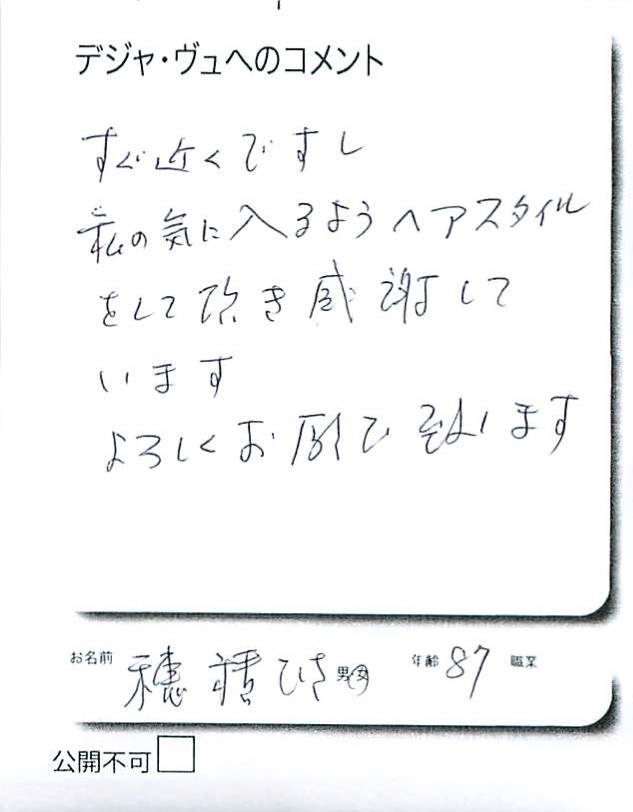 デジャ・ヴュへのコメント
すぐ近くですし
私の気に入るようヘアスタイル
をして頂き感謝して
います
よろしくお願い致します
お名前 穂積ひさ 男・女 年齢 87 職業
公開不可